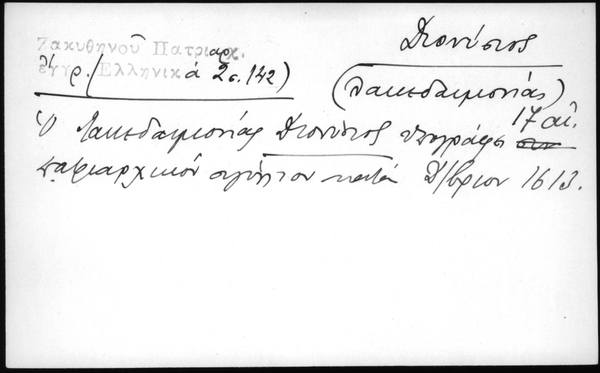 Ζακυθηνοῦ Πατριαρχ.
ἔγγρ. (Ἑλληνικά 2 σ. 142)
Διονύσιος
(Λακεδαιμονίας)
17 αἰ.
Ὁ Λακεδαιμονίας Διονύσιος ὑπογράφει
πατριαρχικόν σιγίλλιον κατά Δ/βριον 1613.